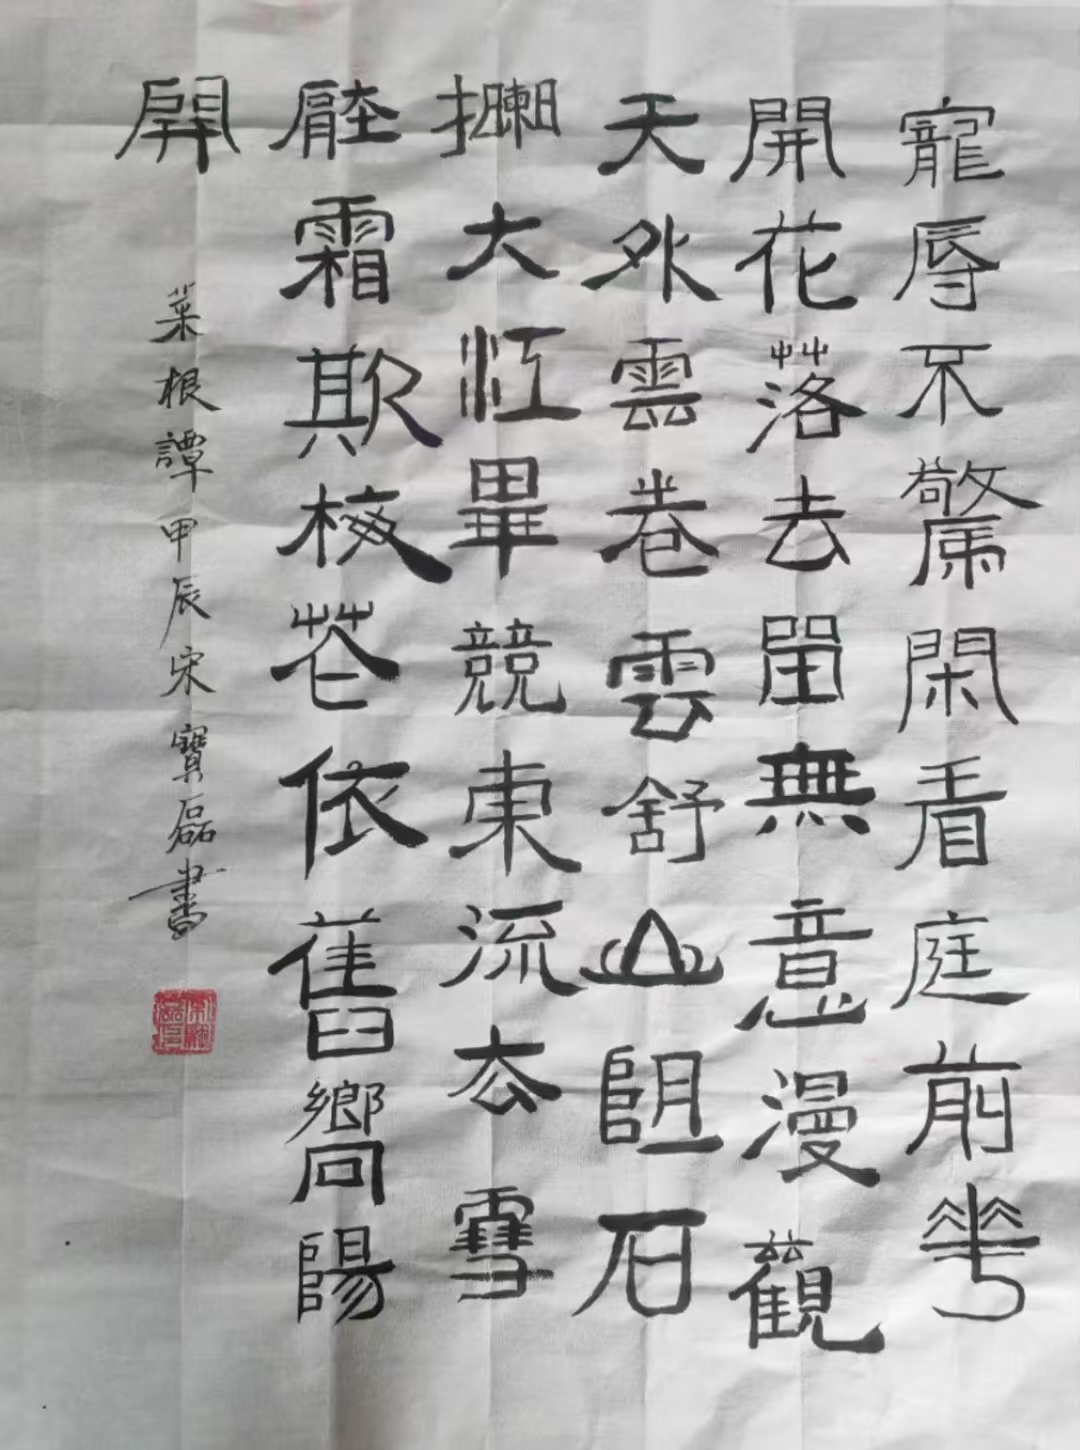 寵辱不驚閑看庭前華
開花落去留無意漫觀
天外雲卷雲舒山阻石
攔大江畢競東流去雪
壓霜欺梅花依舊嚮陽
開
菜根譚甲辰宋寶磊書